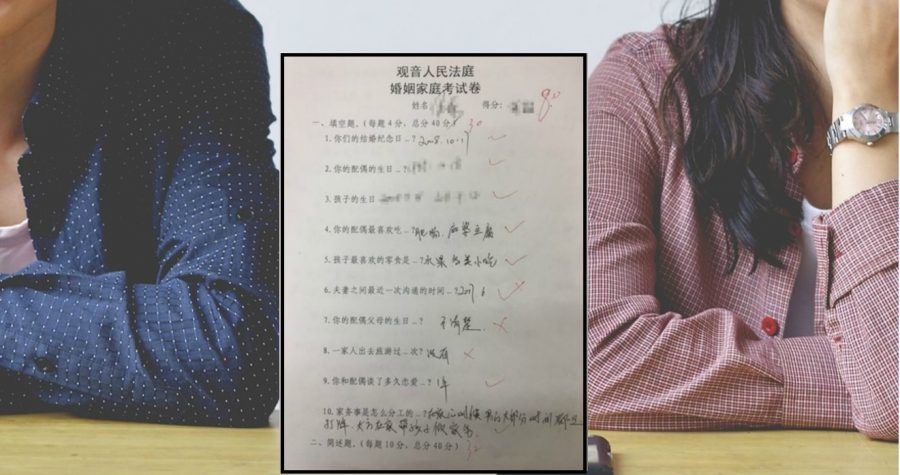 观音人民法庭
婚姻家庭考试卷
姓名 得分: 80
一、填空题,(每题4分、总分40分) 30
1.你们的结婚纪念日…? 2008.10.17
2.你的配偶的生日…?
3.孩子的生日
4.你的配偶最喜欢吃…? 肥肠、麻婆豆腐
5.孩子最喜欢的零食是…? 水果 各类小吃
6.夫妻之间最近一次沟通的时间…? 2017.6
7.你的配偶父母的生日…? 不清楚.
8.一家人出去旅游过…次? 没有
9.你和配偶谈了多久恋爱…? 1年
10.家务事是怎么分工的…? 在家的时候 大部分时间都是
打牌. 女方在家带孩子做家务.
二、简述题,(每题10分,总分40分) 32